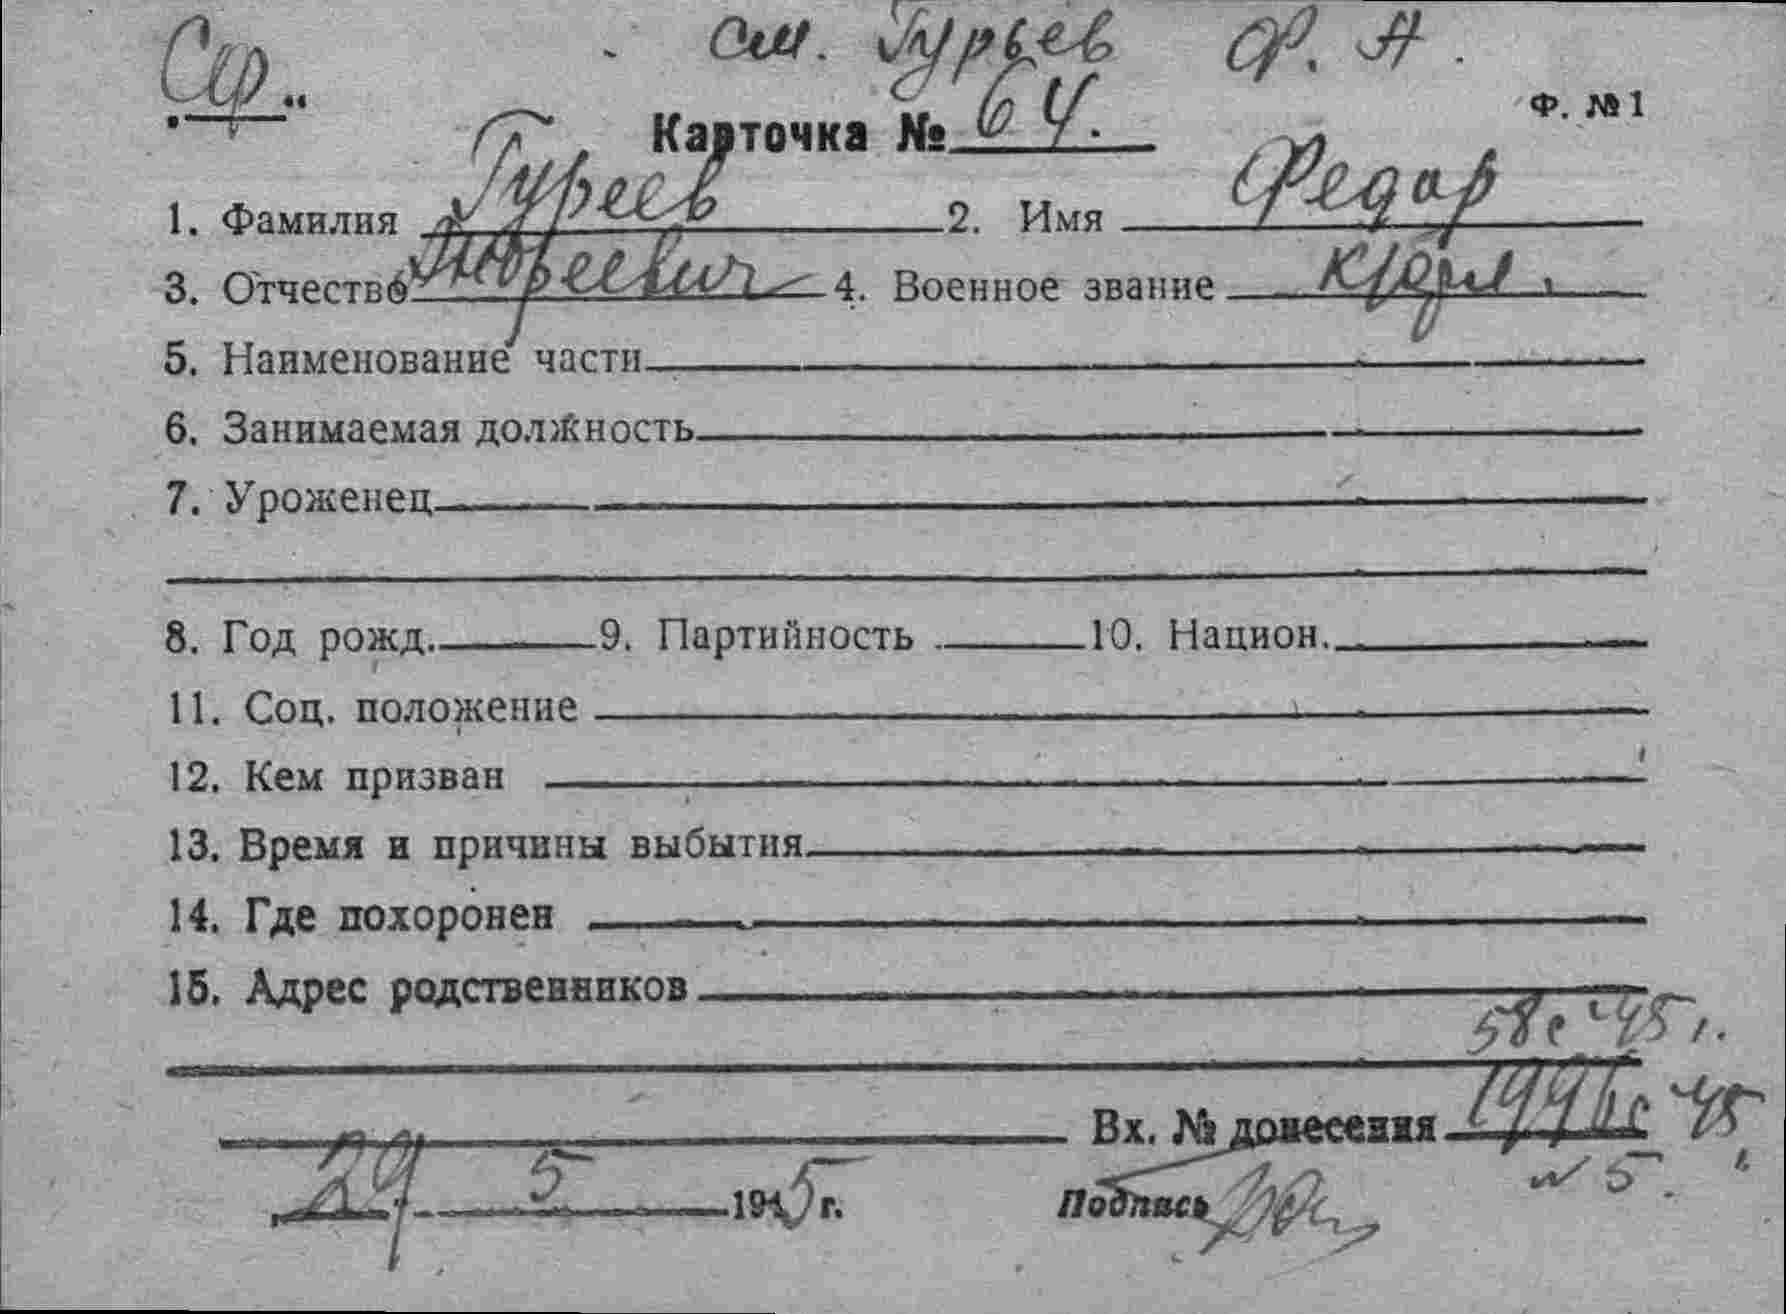 см. Гурьев Ф. А.
Ср.
Карточка № 64. Ф. № 1
1. Фамилия Гуреев 2. Имя Федор
3. Отчество 4. Военное звание
5. Наименование части
6. Занимаемая должность
7. Уроженец
8. Год рожд. 9. Партийность 10. Национ.
11. Соц. положение
12. Кем призван
13. Время и причины выбытия
14. Где похоронен
15. Адрес родственников
58с 45 г.
Вх. № донесения 45
29 5 1945 г. Подпись № 5.